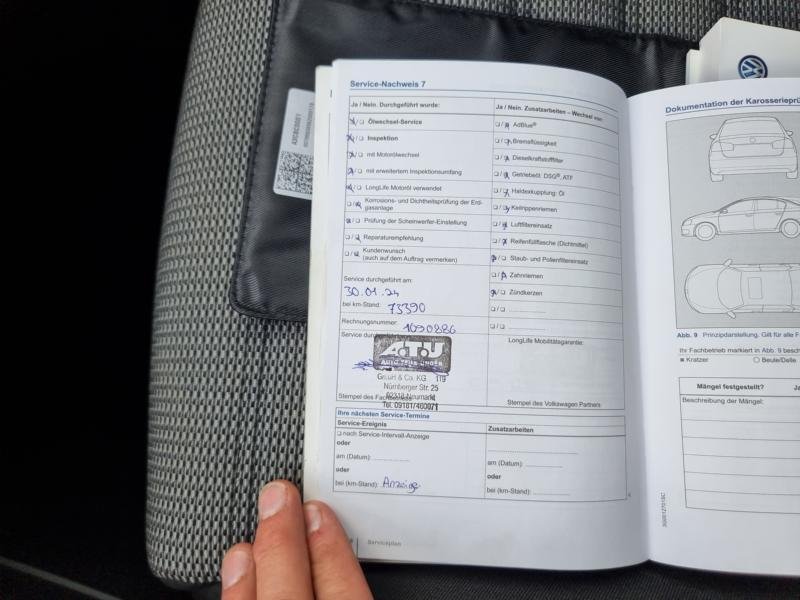 Service-Nachweis 7
Ja / Nein. Durchgeführt wurde:
Ölwechsel-Service
Inspektion
mit Motorölwechsel
mit erweitertem Inspektionsumfang
LongLife Motoröl verwendet
Korrosions- und Dichtheitsprüfung der Erd-
gasanlage
Prüfung der Scheinwerfer-Einstellung
Reparaturempfehlung
Kundenwunsch
(auch auf dem Auftrag vermerken)
Service durchgeführt am:
30.01.24
bei km-Stand: 73390
Rechnungsnummer: 1690886
Service durchgeführt
A.T.U
AUTO TEILE UNGER
GmbH & Co. KG 119
Nürnberger Str. 25
92318 Neumarkt
Stempel des Fachbetriebs
Tel. 09181/460071
Ja / Nein. Zusatzarbeiten – Wechsel von:
AdBlue®
Bremsflüssigkeit
Dieselkraftstofffilter
Getriebeöl: DSG®, ATF
Haldexkupplung: Öl
Keilrippenriemen
Luftfiltereinsatz
Reifenfüllflasche (Dichtmittel)
Staub- und Pollenfiltereinsatz
Zahnriemen
Zündkerzen
LongLife Mobilitätsgarantie:
Stempel des Volkswagen Partners
Ihre nächsten Service-Termine
Service-Ereignis
nach Service-Intervall-Anzeige
oder
am (Datum):
oder
bei (km-Stand): Anzeige
Zusatzarbeiten
am (Datum):
oder
bei (km-Stand):
Serviceplan
Dokumentation der Karosserieprü
Abb. 9 Prinzipdarstellung. Gilt für alle F
Ihr Fachbetrieb markiert in Abb. 9 besch
Kratzer
Beule/Delle
Mängel festgestellt? Ja
Beschreibung der Mängel: